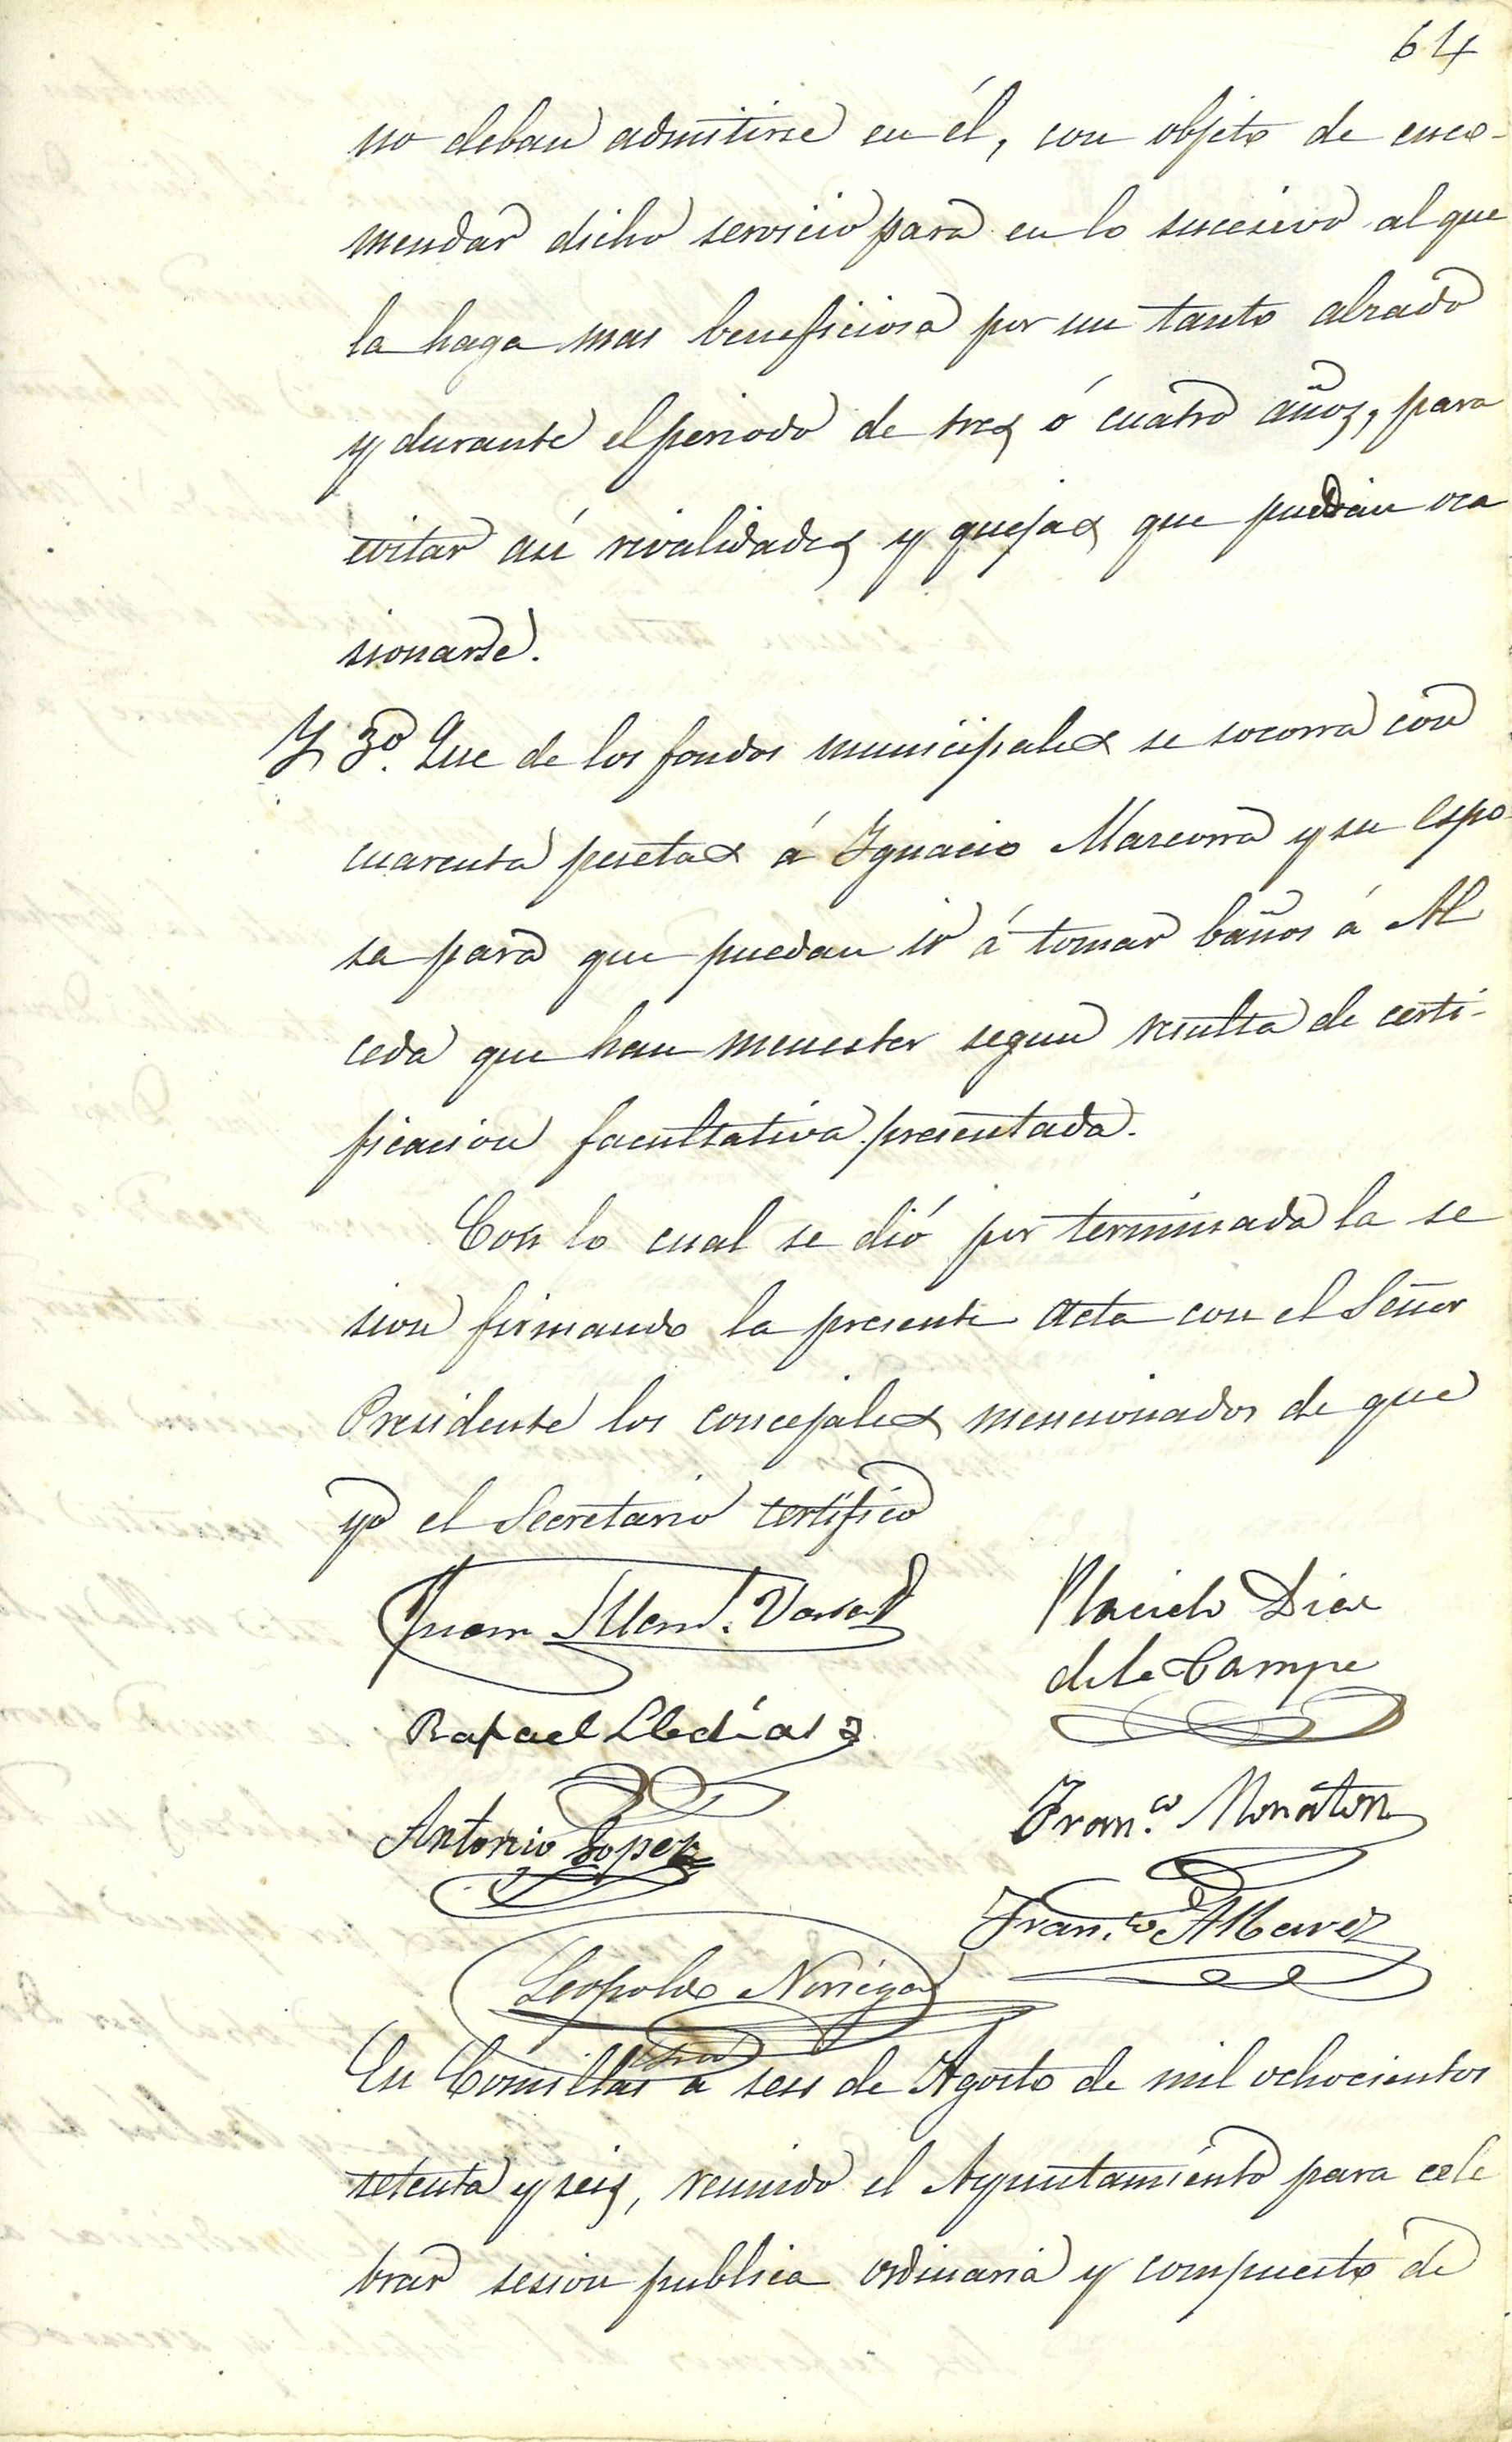 64
no deban admitirse en él, con objeto de enco-
mendar dicho servicio para en lo sucesivo al que
la haga mas beneficiosa por un tanto alzado
y durante el periodo de tres ó cuatro años, para
evitar asi rivalidades y quejas que puedan oca
sionarse.
Y 3º. Que de los fondos municipales se socorra con
cuarenta pesetas á Ignacio Mazcorra y su espo-
sa para que puedan ir á tomar baños á Al
ceda que han menester segun resulta de certi-
ficacion facultativa presentada.
Con lo cual se dió por terminada la se
sion firmando la presente acta con el Señor
Presidente los concejales mencionados de que
yo el Secretario certifico
Juan
Placido Diaz
de la Campa
Rafael Lledías
Antonio Lopez
Fran.co Monaton
Fran.co Alvarez
Leopoldo Noriega
En Comillas a seis de Agosto de mil ochocientos
setenta y seis, reunido el Ayuntamiento para cele
brar sesion publica ordinaria y compuesto de